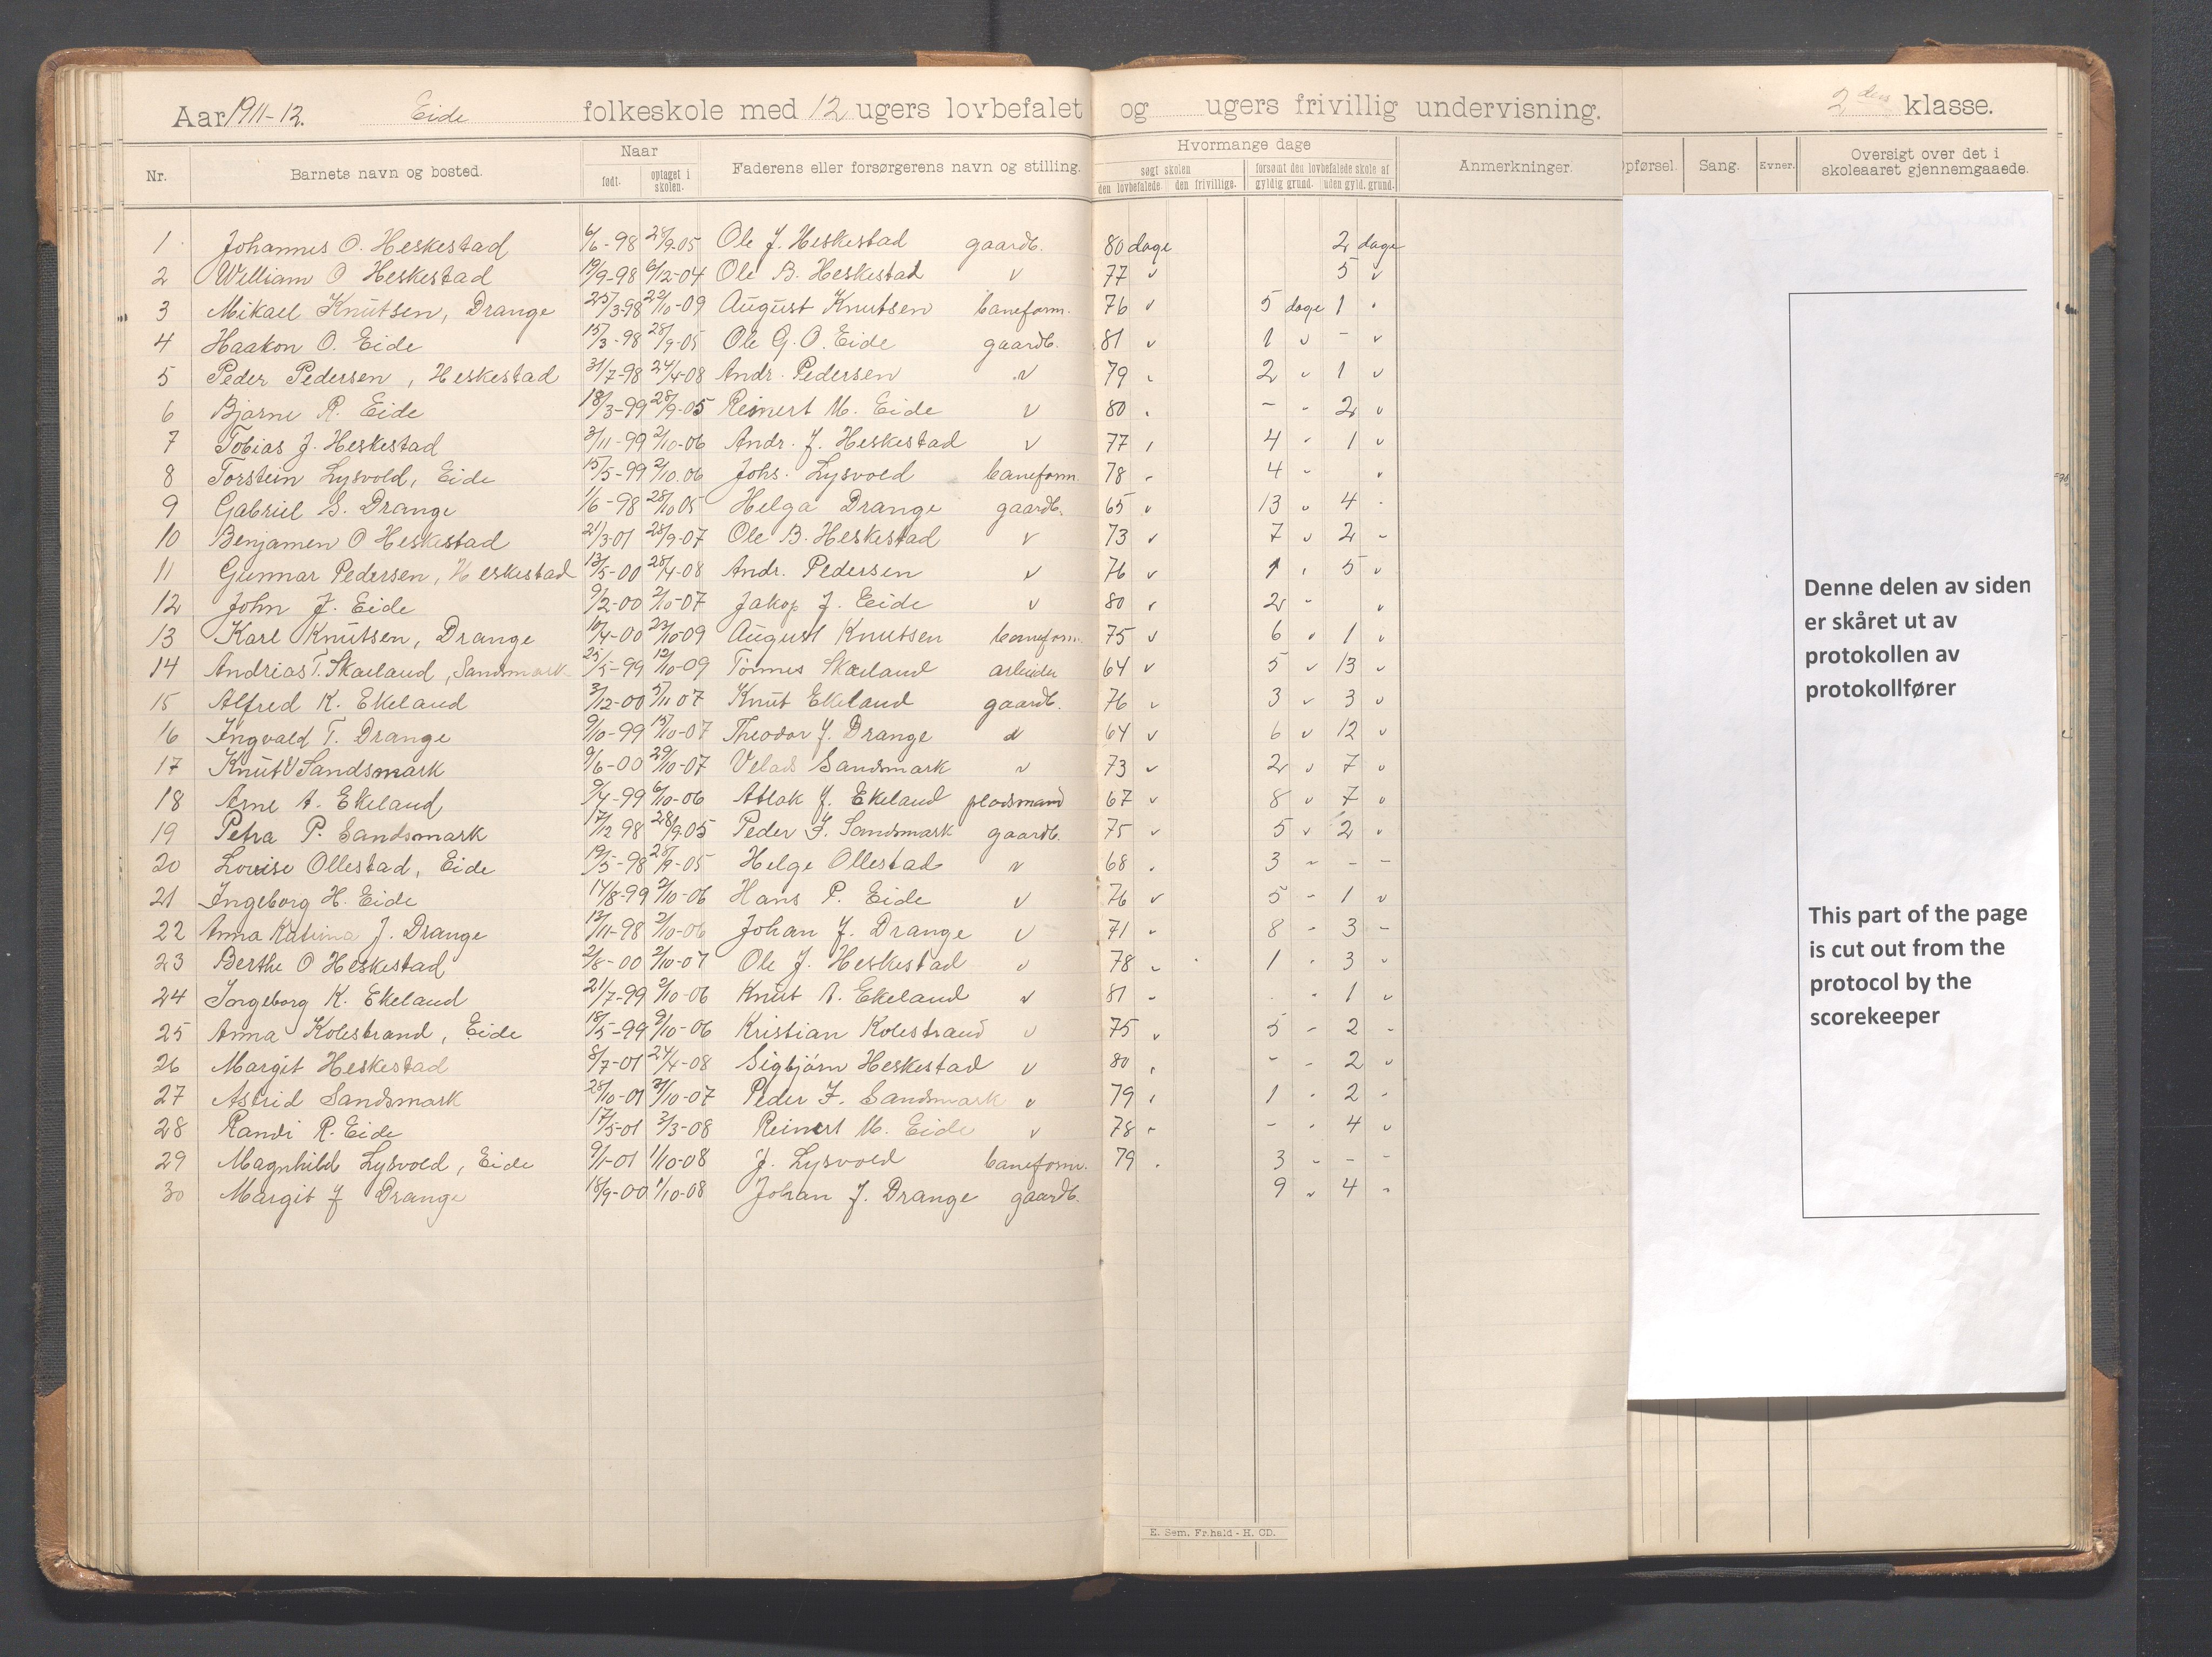 Aar 1911-12. Eide folkeskole med 12 ugers lovbefalet og ugers frivillig undervisning. 2den klasse.
Nr. Barnets navn og bosted. Naar født. optaget i skolen. Faderens eller forsørgerens navn og stilling. Hvormange dage søgt skolen den lovbefalede. den frivillige. forsømt den lovbefalede skole af gyldig grund. uden gyld. grund. Anmerkninger. Opførsel. Sang. Evner. Oversigt over det i skoleaaret gjennemgaaede.
1 Johannes O. Heskestad 6/6-98 28/9-05 Ole J. Heskestad gaardb. 80 dage 2 dage
2 William O Heskestad 19/9-98 6/12-04 Ole B. Heskestad v 77 v 5 v
3 Mikael Knutsen, Drange 25/3-98 22/10-09 August Knutsen baneform. 76 v 5 dage 1
4 Haakon O. Eide 15/3-98 28/9-05 Ole G. O. Eide gaardb. 81 v 1 v - v
5 Peder Pedersen, Heskestad 31/7-98 24/4-08 Andr. Pedersen v 79 2 v 1 v
6 Bjarne R. Eide 18/3-99 28/9-05 Reinert M. Eide v 80 - - 2 v
7 Tobias J. Heskestad 3/11-99 2/10-06 Andr. J. Heskestad v 77 4 - 1 v
8 Torstein Lysvold, Eide 15/5-99 2/10.06 Johs. Lysvold baneform. 78 4 -
9 Gabriel S. Drange 1/6-98 28/10 05 Helga Drange gaardb. 65 v 13 v 4 -
10 Benjamen O Heskestad 21/3-01 28/9-07 Ole B. Heskestad v 73 v 7 v 2 -
11 Gunnar Pedersen, Heskestad 13/5-00 28/4-08 Andr. Pedersen v 76 v 1 5 v
12 John J. Eide 9/2-00 2/10-07 Jakop J. Eide v 80 v 2 - v
13 Karl Knutsen, Drange 10/4-00 22/10-09 August Knutsen baneform. 75 v 6 v 1 v
14 Andrias T. Skailand, Sandsmark 25/5-99 12/10-09 Tønnes Skailand arbeider 64 v 5 v 13 v
15 Alfred K. Ekeland 3/12-00 5/11 07 Knut Ekeland gaardb. 76 v 3 v 3 v
16 Ingvald T. Drange 9/10-99 15/10-07 Theodor J. Drange v 64 v 6 v 12 v
17 Knut V Sandsmark 9/6-00 29/10-07 Sandsmark v 73 v 2 v 7 v
18 Arne A. Ekeland 9/4-99 6/10-06 Atlak J. Ekeland pladsmand 67 v 8 v 7 v
19 Petra P. Sandsmark 17/12 98 28/9.05 Peder F. Sandsmark gaardb. 75 v 5 v 2 v
20 Louise Ollestad, Eide 19/5-98 28/9-05 Helge Ollestad v 68 3 - - -
21 Ingeborg H. Eide 14/8-99 2/10-06 Hans P. Eide v 76 v 5 - 1 v
22 Anna Katrina J. Drange 12/11-98 2/10-06 Johan J. Drange v 71 - 8 - 3 -
23 Berthe O Heskestad 2/8-00 2/10-07 Ole J. Heskestad v 78 v 1 - 3 v
24 Ingeborg K. Ekeland 21/7-99 2/10-06 Knut A. Ekeland v 81 - - 1 v
25 Anna Kolestrand, Eide 18/5-99 2/10-06 Kristian Kolestrand v 75 v 5 - 2 -
26 Margit Heskestad 8/7-01 24/4-08 Sigbjørn Heskestad v 80 - - 2 v
27 Astrid Sandsmark 28/10-01 31/10-07 Peder F. Sandsmark v 79 1 - 2 -
28 Randi R. Eide 17/5-01 2/3-08 Reinert M. Eide v 78 - - - 4 v
29 Magnhild Lysvold, Eide 9/1-01 1/10-08 J. Lysvold baneform. 79 3 - - -
30 Margit J Drange 18/9-00 1/10-08 Johan J. Drange gaardb. 9 v 4 -
E. Sem. Fr.hald - H. CD.
Denne delen av siden
er skåret ut av
protokollen av
protokollfører
This part of the page
is cut out from the
protocol by the
scorekeeper